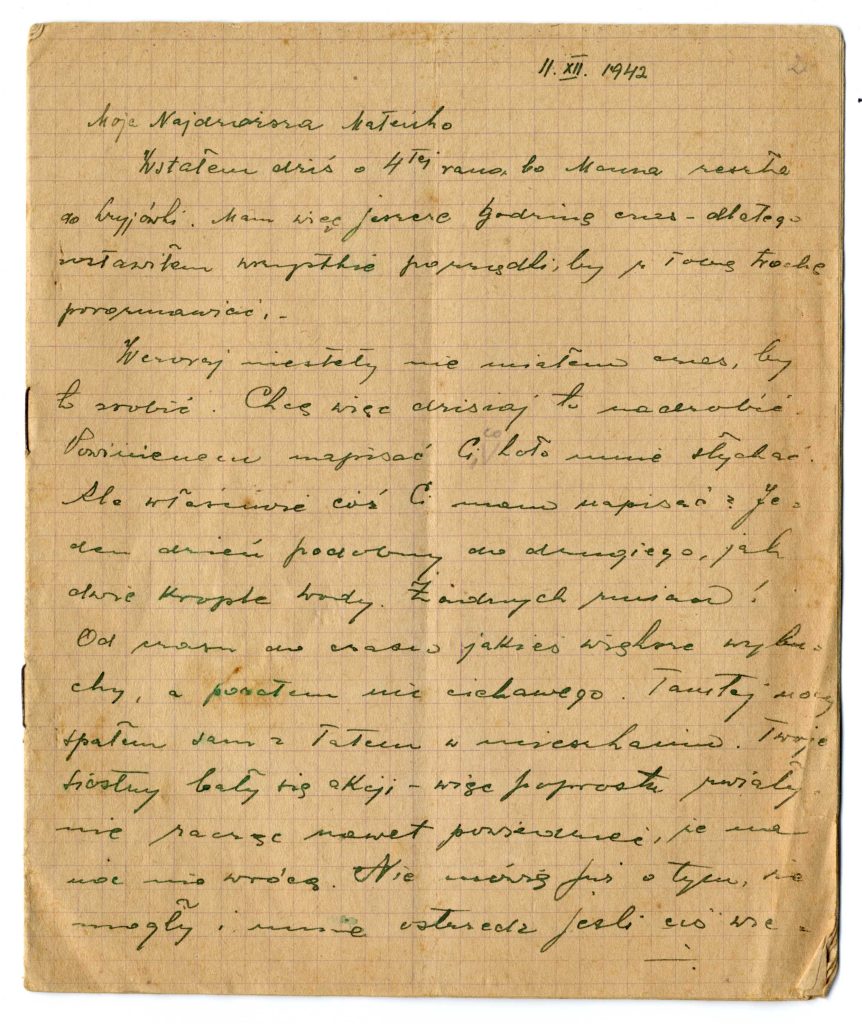 11. XII. 1942
2
Moje Najdroższa Mateńko
Wstałem dziś o 4tej rano, bo Mamna zeszła
do kryjówki. Mam więc jeszcze godzinę czas - dlatego
zostawiłem wszystkie porządki, by z Tobą trochę
porozmawiać. -
Wczoraj niestety nie miałem czas, by
to zrobić. Chcę więc dzisiaj to nadrobić.
Powinienem napisać Ci, co koło mnie słychać.
Ale właściwie cóż Ci mam napisać? Je-
den dzień podobny do drugiego, jak
dwie krople wody. Żadnych zmian!
Od czasu do czasu jakieś większe wybu-
chy, a pozatem nic ciekawego. Tamtej nocy
spałem sam z Tatem w mieszkaniu. Twoje
siostry bały się akcji - więc poprostu zwiały,
nie racząc nawet powiedzieć, że na
noc nie wrócą. Nie mówię już o tym, że
mogły i mnie ostrzedz jeśli coś wie-